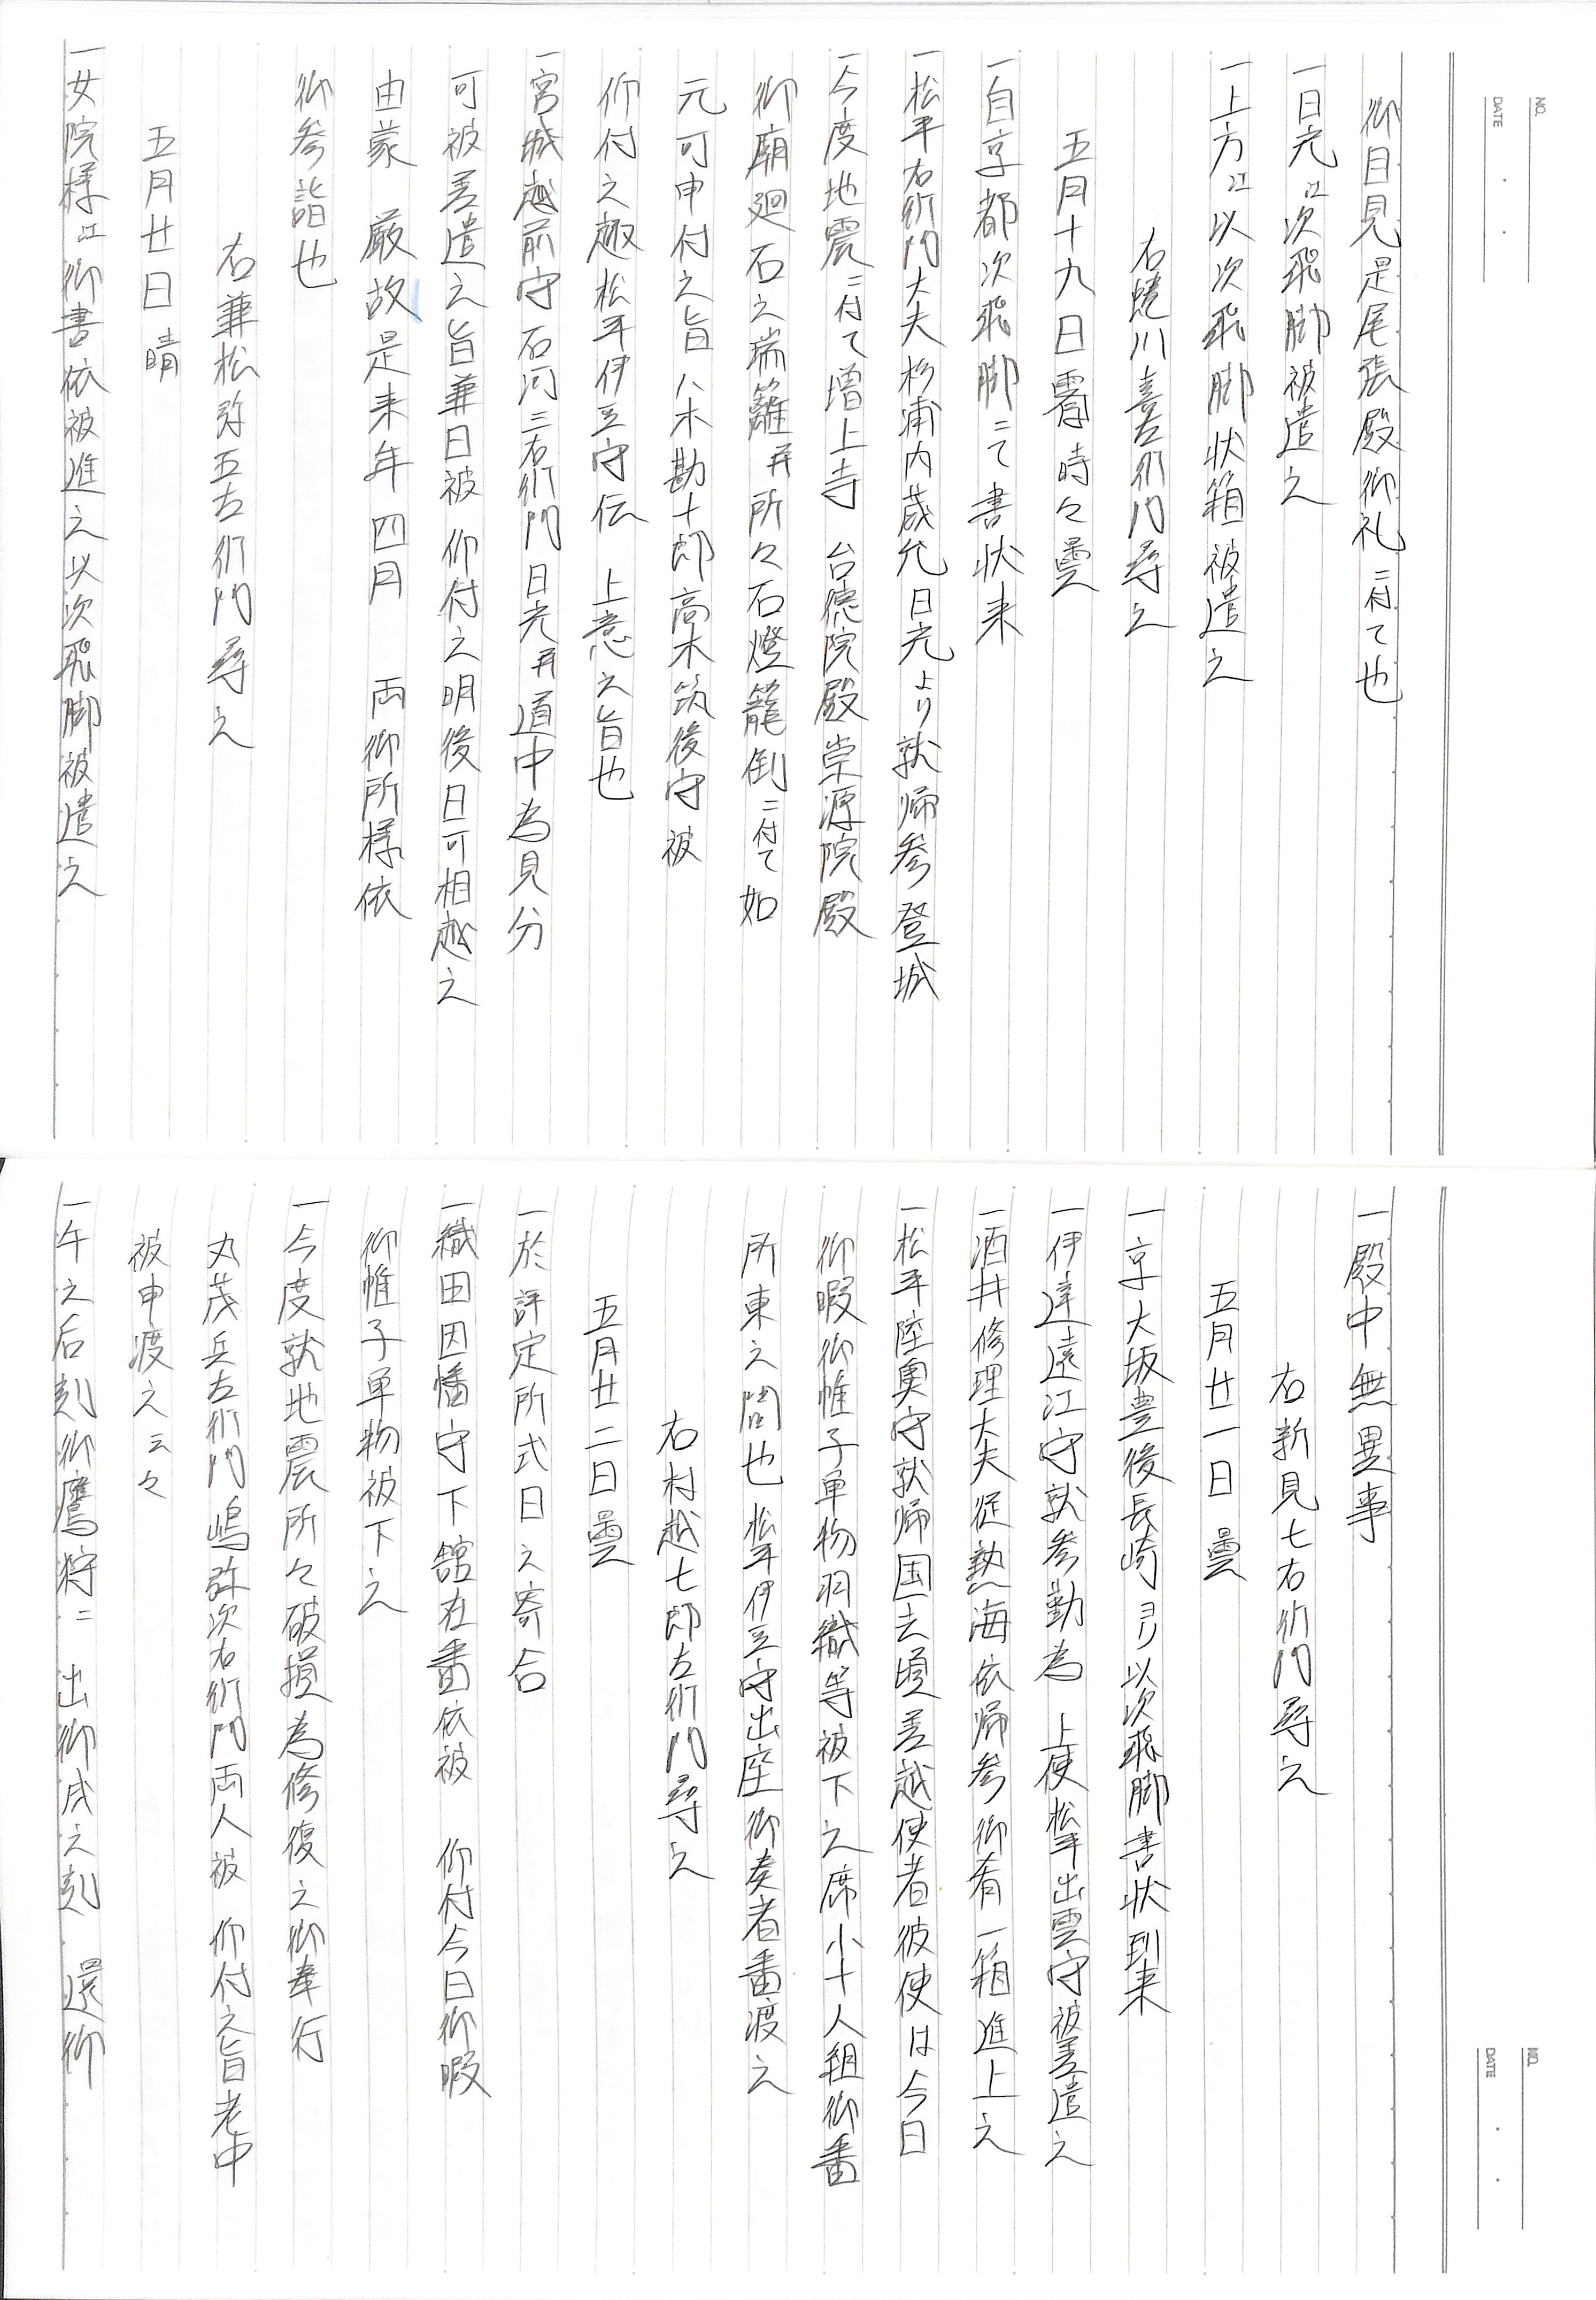 NO.
DATE
御目見是尾張殿御礼ニ付て也
一日光江次飛脚被遣之
一上方江以次飛脚状箱被遣之
右蜷川喜左衛門尋之
五月十九日霽時々曇
一自京都次飛脚ニて書状来
一松平右衛門大夫杉浦内蔵允日光より就帰参登城
一今度地震ニ付て増上寺 台徳院殿崇源院殿
御廟廻石之瑞籬并所々石燈籠倒ニ付て如
元可申付之旨八木勘十郎高木筑後守被
仰付之趣松平伊豆守伝 上意之旨也
一宮城越前守石河三右衛門日光并道中為見分
可被差遣之旨兼日被 仰付之明後日可相越之
由蒙 厳故是来年四月 両御所様依
御参詣也
右兼松弥五左衛門尋之
五月廿日 晴
一女院様江御書依被進之以次飛脚被遣之
NO.
DATE
一殿中無異事
右新見七右衛門尋之
五月廿一日 曇
一京大坂豊後長崎ヨリ以次飛脚書状到来
一伊達遠江守就参勤為 上使松平出雲守被差遣之
一酒井修理大夫従熱海依帰参御肴一箱進上之
一松平陸奥守就帰国去頃差越使者彼使は今日
御暇御帷子単物羽織等被下之席小十人組御番
所東之間也松平伊豆守出座御奏者番渡之
右村越七郎左衛門尋之
五月廿二日 曇
一於評定所式日之寄合
一織田因幡守下舘在番依被 仰付今日御暇
御帷子単物被下之
一今度就地震所々破損為修復之御奉行
丸茂兵左衛門嶋弥次右衛門両人被 仰付之旨老中
被申渡之云々
一午之后刻御鷹狩ニ 出御戌之刻 還御